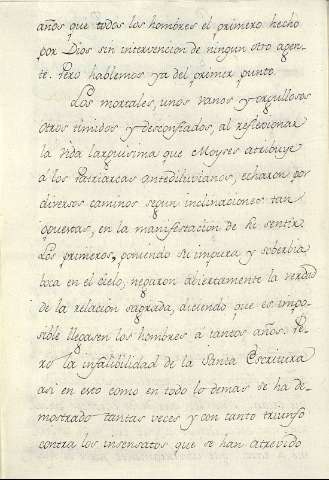 años que todos los hombres el primero hecho
por Dios sin intervencion de ningun otro agen-
te. Pero hablemos ya del primer punto.
Los mortales, unos vanos y orgullosos
otros timidos y desconfiados, al reflexionar
la vida larguisima que Moyses atribuye
a los Patriarcas antediluvianos, echaron por
diversos caminos segun inclinaciones tan
opuestas, en la manifestacion de su sentir.
Los primeros, poniendo su impura y soberbia
boca en el cielo, negaron abiertamente la verdad
de la relacion sagrada, diciendo que es impo-
sible llegasen los hombres a tantos años. Pe-
ro la infalibilidad de la Santa Escritura
asi en esto como en todo lo demas se ha de-
mostrado tantas veces y con tanto triunfo
contra los insensatos que se han atrevido